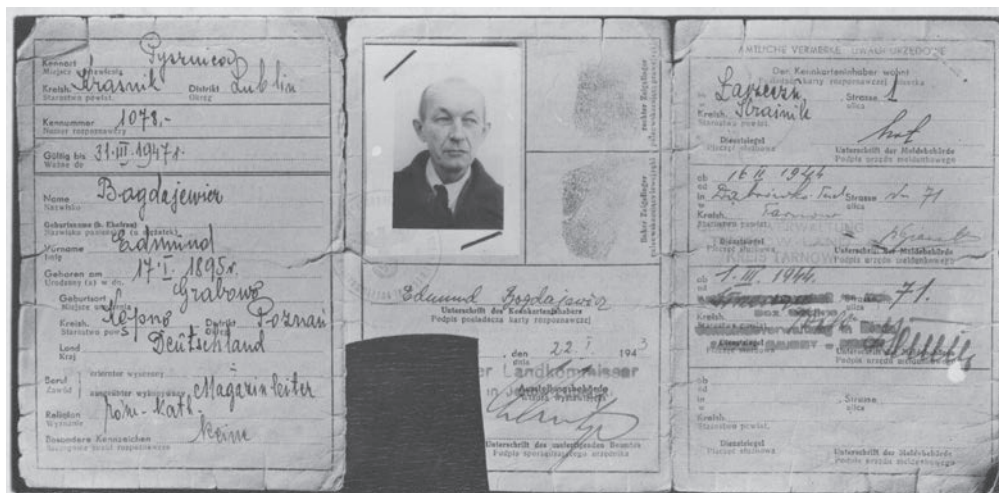 Kennort Pysznica
Miejsce wystawienia
Kreish. Kraśnik Distrikt Lublin
Starostwo powiat. Okręg
Kennummer 1078,-
Numer rozpoznawczy
Gültig bis 31.III.1947r.
Ważne do
Name Bagdajewicz
Nazwisko
Geburtsname (b. Ehefrau)
Nazwisko panieńskie (u mężatek)
Vorname Edmund
Imię
Geboren am 17.I.1895r.
Urodzony (a) w dn.
Geburtsort Grabowo
Miejsce urodzenia
Kreish. Kępno Distrikt Poznań
Starostwo pow. Okręg
Land Deutschland
Kraj
Beruf erlernter wyuczony
Zawód ausgeübter wykonywany Magazinleiter
Religion röm.-kath.
Wyznanie
Besondere Kennzeichen keine
rechter Zeigefinger
linker Zeigefinger
Edmund Bogdajewicz
Unterschrift des Kennkarteninhabers
Podpis posiadacza karty rozpoznawczej
, den 22.I. 1943
dnia
er Landkommissar
in
Ausstellungsbehörde
Unterschrift des ausfertigenden Beamten
AMTLICHE VERMERKE UWAGI URZĘDOWE
Der Kennkarteninhaber wohnt
in Strasse 1
w ulica
Kreish. Kraśnik
Starostwo powiat.
Dienstsiegel Unterschrift der Meldebehörde
Pieczęć służbowa Podpis urzędu meldunkowego
ab 16 II 1944
od
in Strasse 71
w ulica
Kreish. Tarnow
Starostwo powiat.
KREIS TARNOW
Dienstsiegel Unterschrift der Meldebehörde
Pieczęć służbowa Podpis urzędu meldunkowego
ab 1.III.1944.
od
71.
Kreish.
Dienstsiegel Unterschrift der Meldebehörde
Podpis urzędu meldunkowego
ab
od
in Strasse
w ulica
Kreish.
Starostwo powiat.
Dienstsiegel Unterschrift der Meldebehörde
Pieczęć służbowa Podpis urzędu meldunkowego